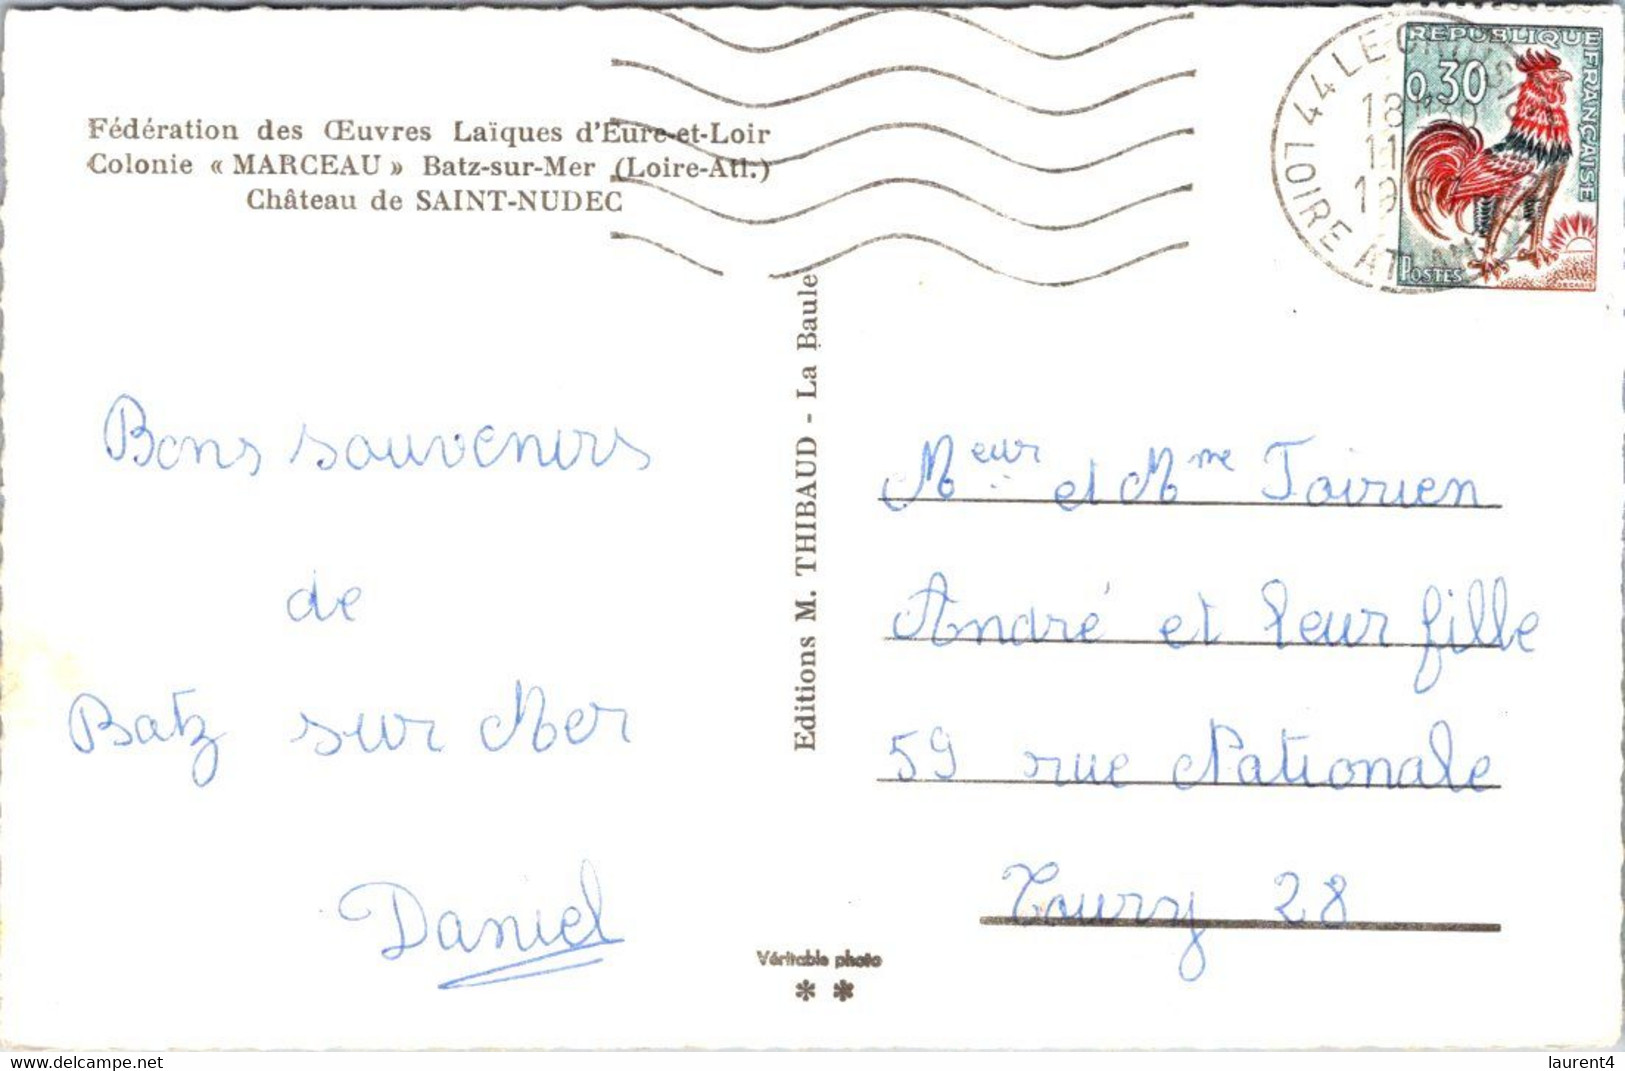 Fédération des Œuvres Laïques d'Eure-et-Loir
Colonie « MARCEAU » Batz-sur-Mer (Loire-Atl.)
Château de SAINT-NUDEC
REPUBLIQUE FRANÇAISE
0,30
POSTES
44 LE
18
11
19
LOIRE AT
Bons souvenirs
de
Batz sur Mer
Daniel
Editions M. THIBAUD - La Baule
Meur et Mme Toirien
André et leur fille
59 rue Nationale
Toury 28
Véritable photo
laurent4